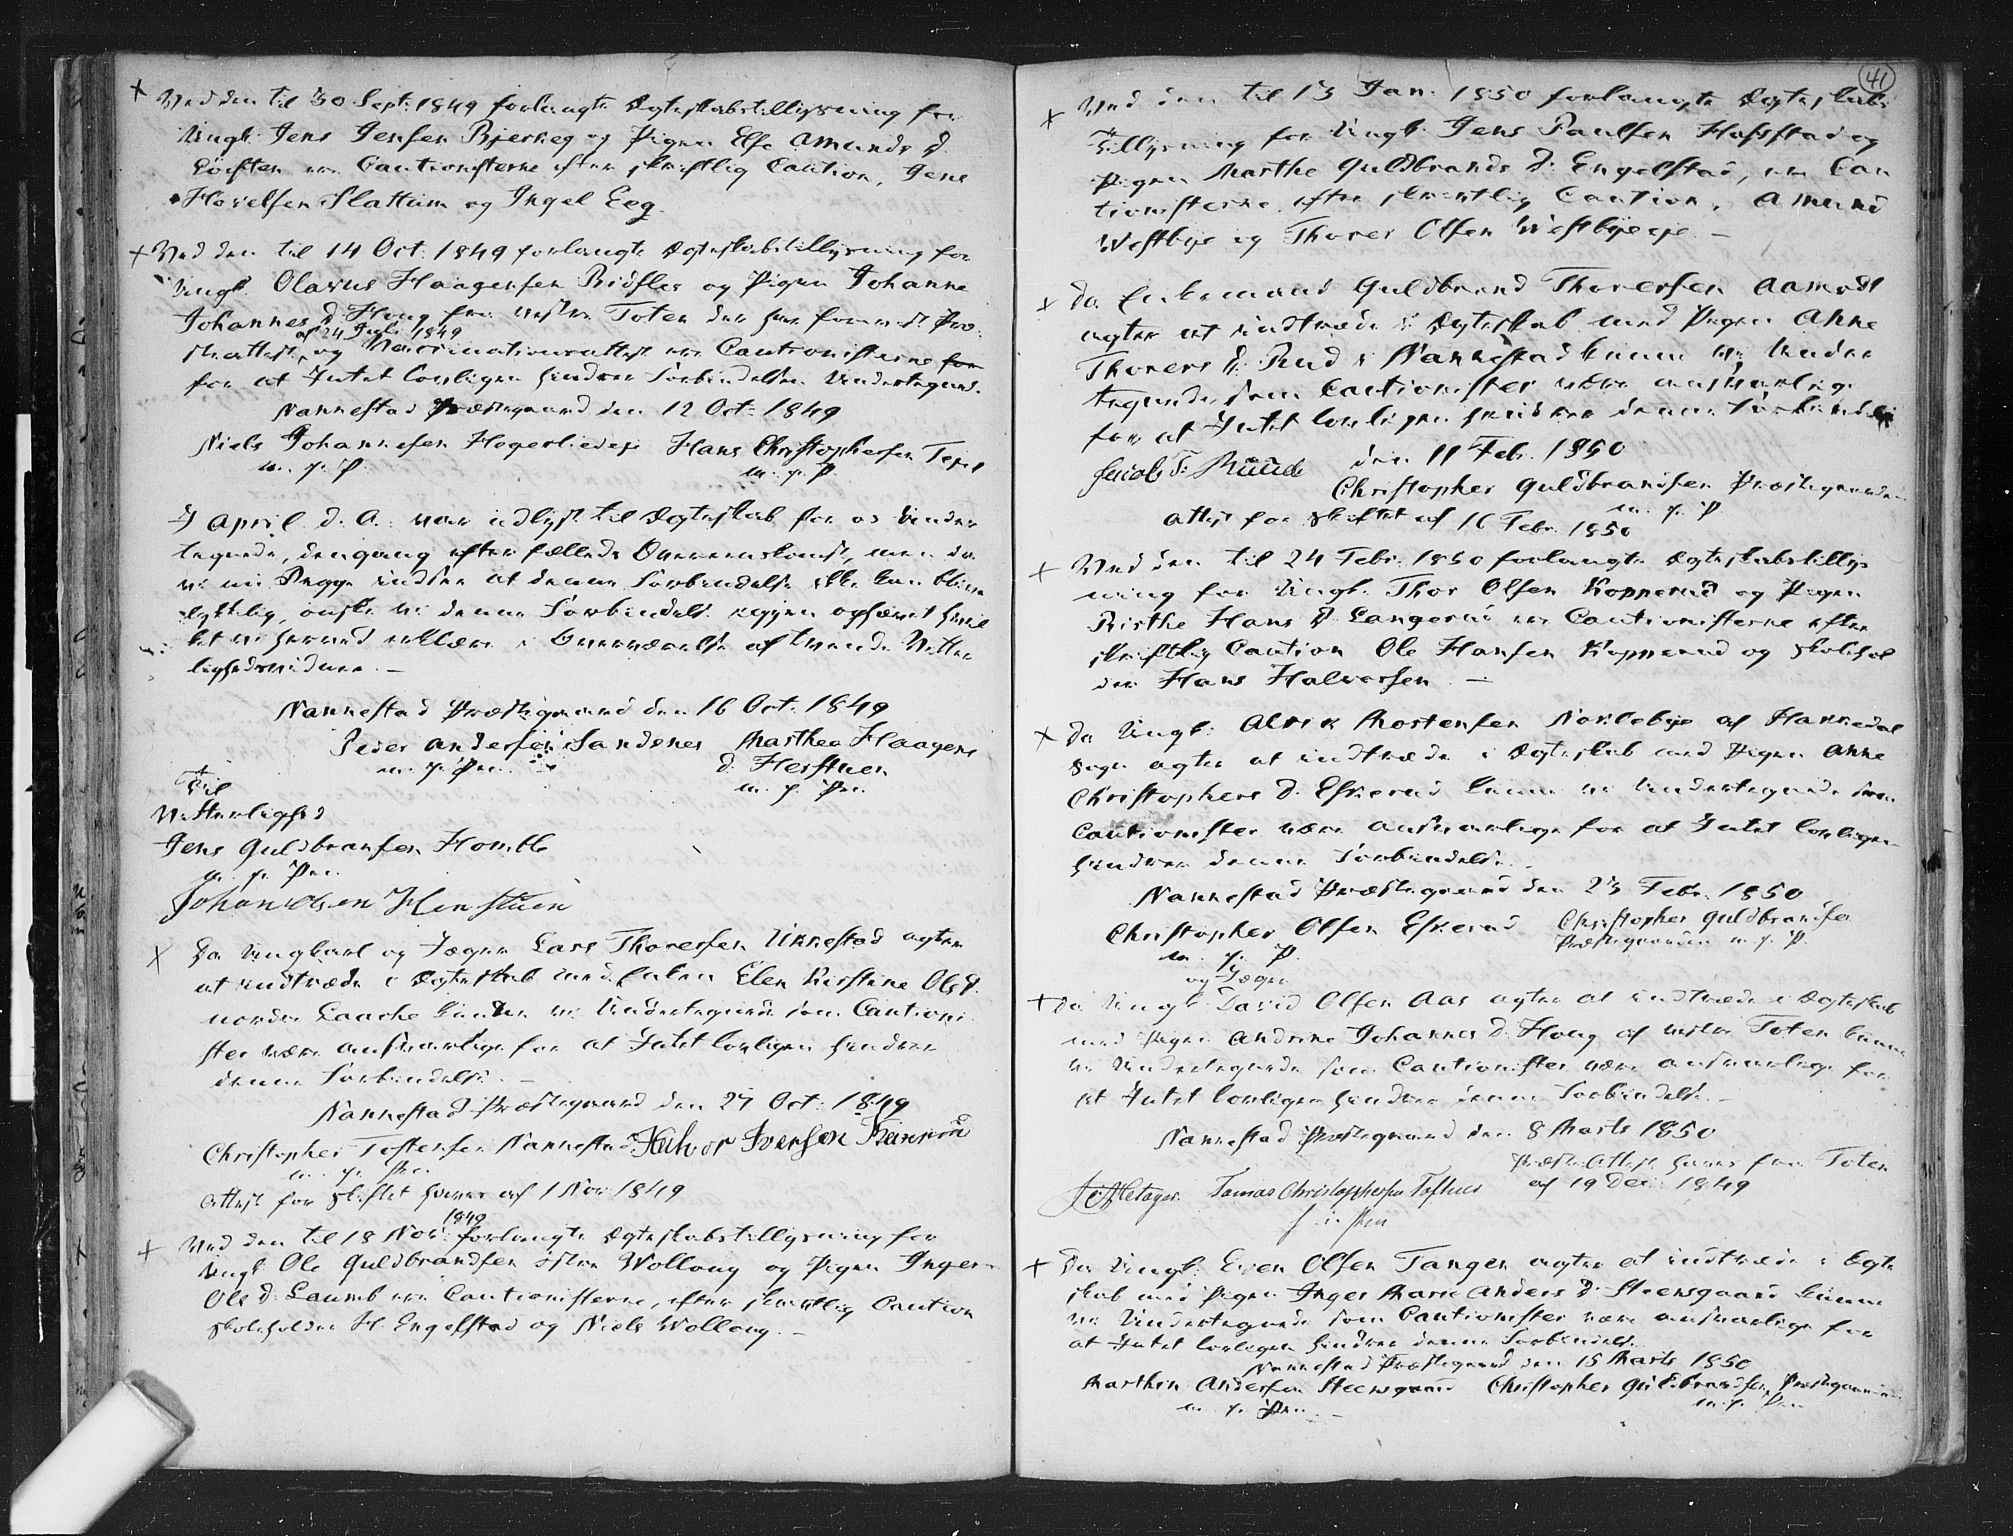 Ved den til 30 Sept. 1849 forlangte Ægteskabstillysning for
Ungk. Jens Jensen Bjerkeg og Pigen Else Amunds D.
Løiften ere Cautionisterne efter skriftlig Caution, Jens
Hovelsen Slattum og Ingel Eeg.
Ved den til 14 Oct. 1849 forlangte Ægteskabstillysning for
Ungk. Olavus Haagensen Ridfler og Pigen Johanne
Johannes D. Houg fra vestre Toten der har foreviist Præ-
af 24 Juli 1849
steattest, og Vaccinationsattest ere Cautionisterne for
for at Intet lovligen hindrer Forbindelsen Undertegnede.
Nannestad Præstegaard den 12 Oct. 1849
Niels Johannesen Hogerlieeje Hans Christophersen Tejet
m. f. P. m. f. P.
I April d. A. var udlyst til Ægteskab for os Under-
tegnede, dengang efter fælleds Overeenskomst, men da
vi nu Begge indsee at denne Forbindelse ikke kan blive
lykkelig, ønske vi denne Forbindelse igjen ophævet hvil-
ket vi herved erklære i Overværelse af tvende Vitter-
lighedsvidner. —
Nannestad Præstegaard den 16 Oct. 1849
Peder Andersen Sandenes Marthea Haagens
m. f. Pen. D. Herstuen
m. f. Pen.
Til
Vitterlighed
Jens Guldbransen Homble
m. f. Pen.
Johan Olsen Herstuen
Da Ungkarl og Jæger Lars Thoresen Unnestad agter
at indtræde i Ægteskab med Enken Elen Kirstine Ols D.
nordre Laache kunne vi Undertegnede som Cautioni-
ster være ansvarlige for at Intet lovligen hindrer
denne Forbindelse. —
Nannestad Præstegaard den 27 Oct. 1849
Christopher Tostensen Nannestad Halvor Iversen
m. f. Pen.
Attest for Skiftet haves af 1 Nov 1849
1849
Ved den til 18 Nov. forlangte Ægteskabstillysning for
Ungk. Ole Guldbrandsen østre Wolloug og Pigen Inger
Ols D. Laumb ere Cautionisterne, efter skriftlig Caution
Skoleholder H. Engelstad og Niels Wolloug. —
41
Ved den til 13 Jan. 1850 forlangte Ægteskabs-
tillysning for Ungk. Jens Paulsen Hofstad og
Pigen Marthe Guldbrands D. Engelstad, ere Cau-
tionisterne efter skriftlig Caution, Amund
Westbye og Thorer Olsen Westbyeeje. —
Da Enkemand Guldbrand Thoresen Aamodt
agter at indtræde i Ægteskab med Pigen Anne
Thorers D. Rud i Nannestad kunne vi Under-
tegnede som Cautionister være ansvarlige
for at Intet lovligen hindrer denne Forbindelse
den 11 Feb. 1850
Jacob T. Ruud Christopher Guldbrandsen Præstegaarden
m. f. P
Attest for Skiftet af 16 Febr. 1850
Ved den til 24 Febr. 1850 forlangte Ægteskabstillys-
ning for Ungk. Thor Olsen Kopperud og Pigen
Birthe Hans D. Langerud ere Cautionisterne efter
skriftlig Caution Ole Hansen Kopperud og Skolehol-
der Hans Halvorsen. —
Da Ungk. Alrik Mortensen Nordebye af Hannedal
Sogn agter at indtræde i Ægteskab med Pigen Anne
Christophers D. Eskerud kunne vi Undertegnede som
Cautionister være ansvarlige for at Intet lovligen
hindrer denne Forbindelse.
Nannestad Præstegaard den 23 Febr. 1850
Christopher Olsen Eskerud Christopher Guldbrandsen
m. f. P. Præstegaarden m. f. P.
og Jæger
Da Ungk. David Olsen Aas agter at indtræde i Ægteskab
med Pigen Andrine Johannes D. Houg af vestre Toten kunne
vi Undertegnede som Cautionister være ansvarlige for
at Intet lovligen hindrer denne Forbindelse. —
Nannestad Præstegaard den 8 Marts 1850
Præste Attest haves fra Toten
af 19 Dec. 1849
Tomas Christophersen Toftner
Da Ungk. Even Olsen Tangen agter at indtræde i Ægte-
skab med Pigen Inger Marie Anders D. Steensgaard kunne
vi Undertegnede som Cautionister være ansvarlige for
at Intet lovligen hindrer denne Forbindelse.
Nannestad Præstegaard den 15 Marts 1850
Marthin Andersen Steensgaard Christopher Guldbrandsen Præstegaarden
m. f. Pen. — m. f. Pen